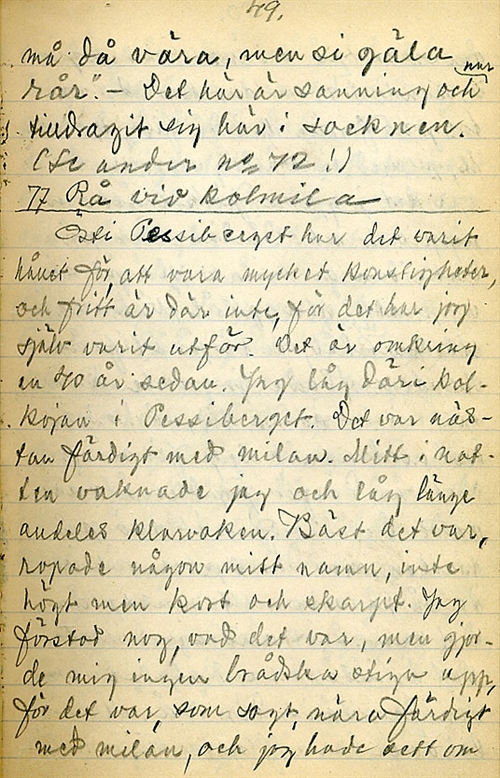 49.
må då våra, men si gäla
når
rår." – Det här är sanning och
tilldragit sig här i socknen.
(Se under nº 72!)
77 Rå vid kolmila
Östi Pessiberget har det varit
hånet för, att vara mycket konstigheter,
och fritt är där inte, för det har jag
själv varit utför. Det är omkring
en 40 år sedan. Jag låg däri kol-
kojan i Pessiberget. Det var näs-
tan färdigt med milan. Mitt i nat-
ten vaknade jag och låg länge
andeles klarvaken. Bäst det var,
ropade någon mitt namn, inte
högt men kort och skarpt. Jag
förstod nog, vad det var, men gjor-
de mig ingen brådska stiga upp,
för det var, som sagt, nära färdigt
med milan, och jag hade sett om